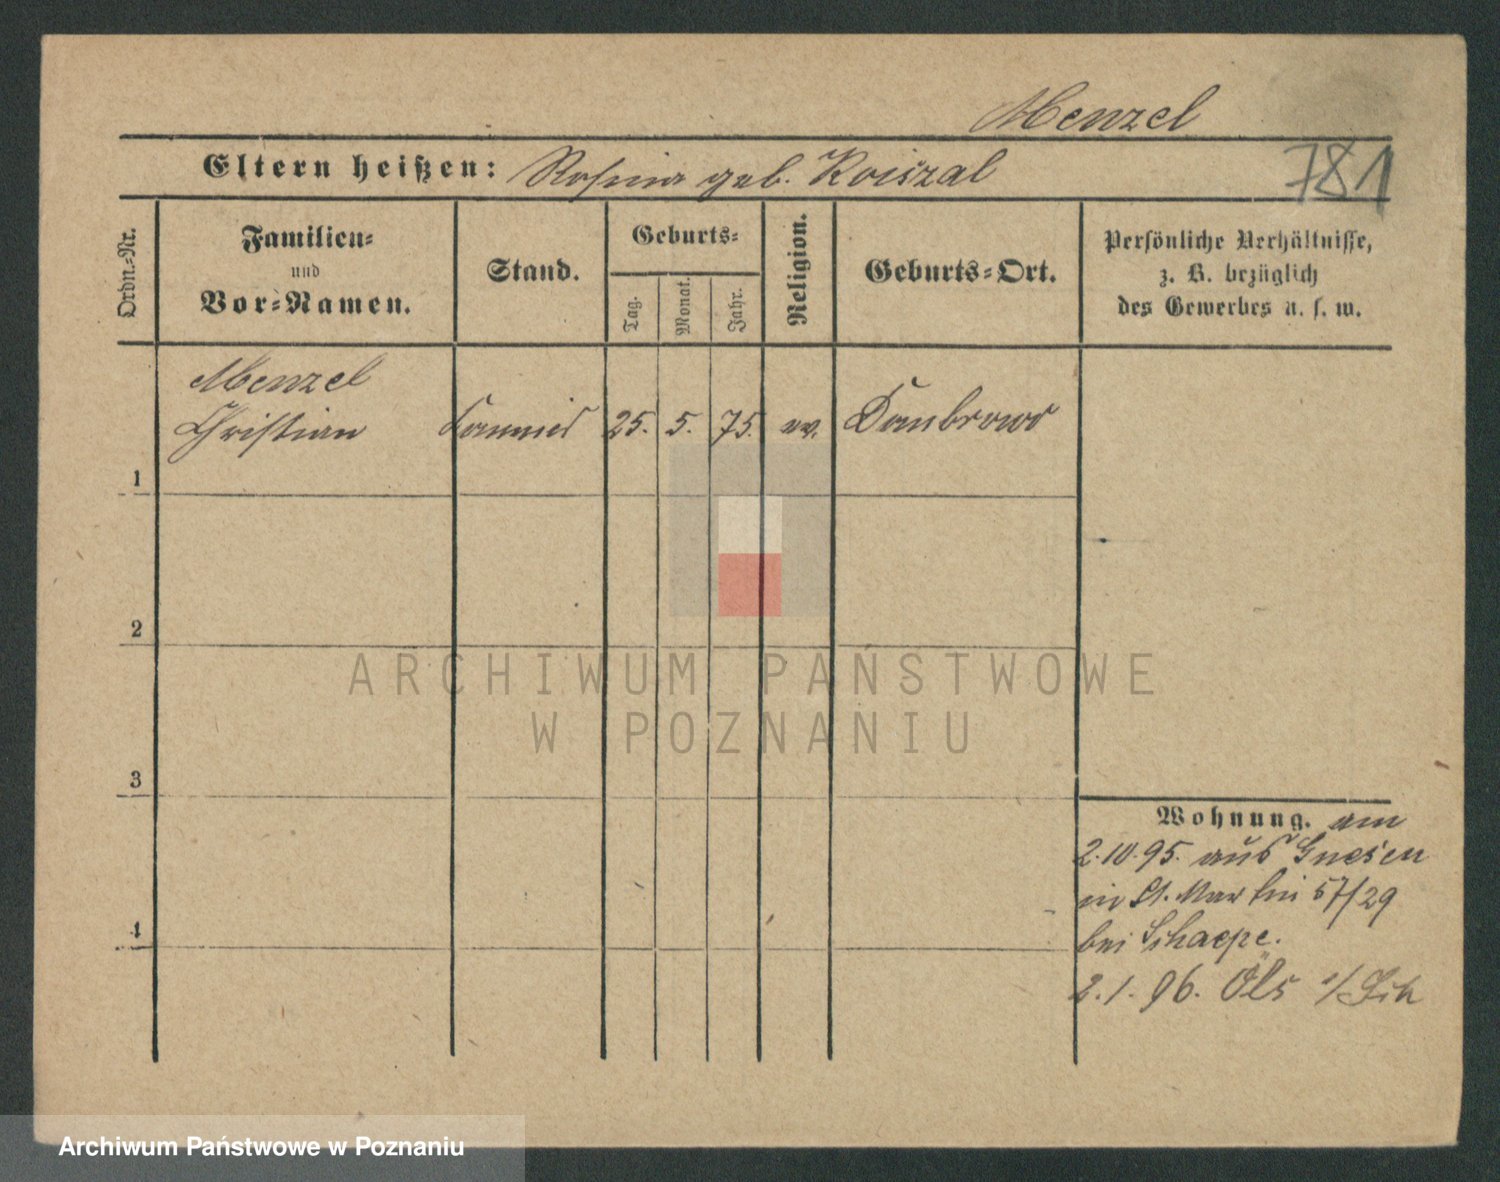 Menzel
Eltern heißen: Rosina geb. Koiszal
781
Ordn.-Nr.
Familien-
und
Vor-Namen.
Stand.
Geburts-
Tag.
Monat.
Jahr.
Religion.
Geburts-Ort.
Persönliche Verhältnisse,
z. B. bezüglich
des Gewerbes u. s. w.
Menzel
Christian
25. 5. 75. ev. Dombrowo
1
2
3
4
Wohnung. am
2.10.95. aus Gnesen
in St. Martin 57/29
bei Schaepe.
2.1.96. Öls i/Sch
ARCHIWUM PAŃSTWOWE
W POZNANIU
Archiwum Państwowe w Poznaniu